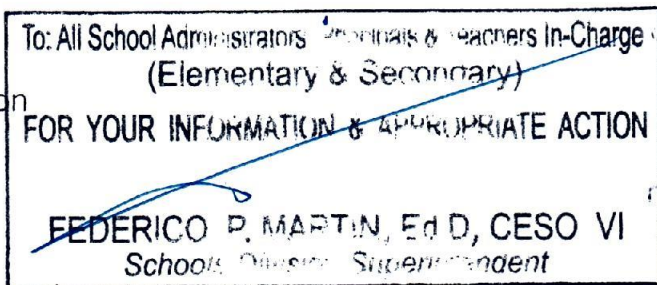 To: All School Administrators Principals & Teachers In-Charge
(Elementary & Secondary)
on
FOR YOUR INFORMATION & APPROPRIATE ACTION
FEDERICO P. MARTIN, Ed D, CESO VI
Schools Division Superintendent